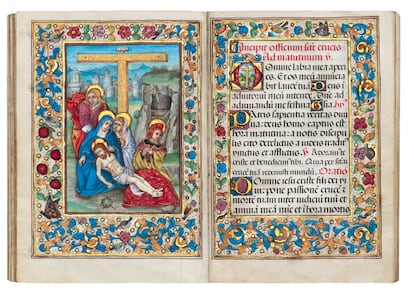 Incipit officium scte crucis
Ad matutinum v.
Domine labia mea aperi
es. et os meu annuncia
bit laude tua Deus in
adiutoriu meu intende. Dne ad
adiuuandu me festina Glia hy
Patris sapientia veritas diui
na: deus homo captus est
hora matutina: a notis discipu
lis cito derelictus a iudeis tradit
et afflictus. Adoram te
criste et benedicim tibi. Quia per sctam
cruce tua redemisti mundu. Oratio
Domine iesu criste fili dei vi
ui: pone passione cruce et
morte tuam inter iudiciu tuu et
anima mea nuc et i hora mortis